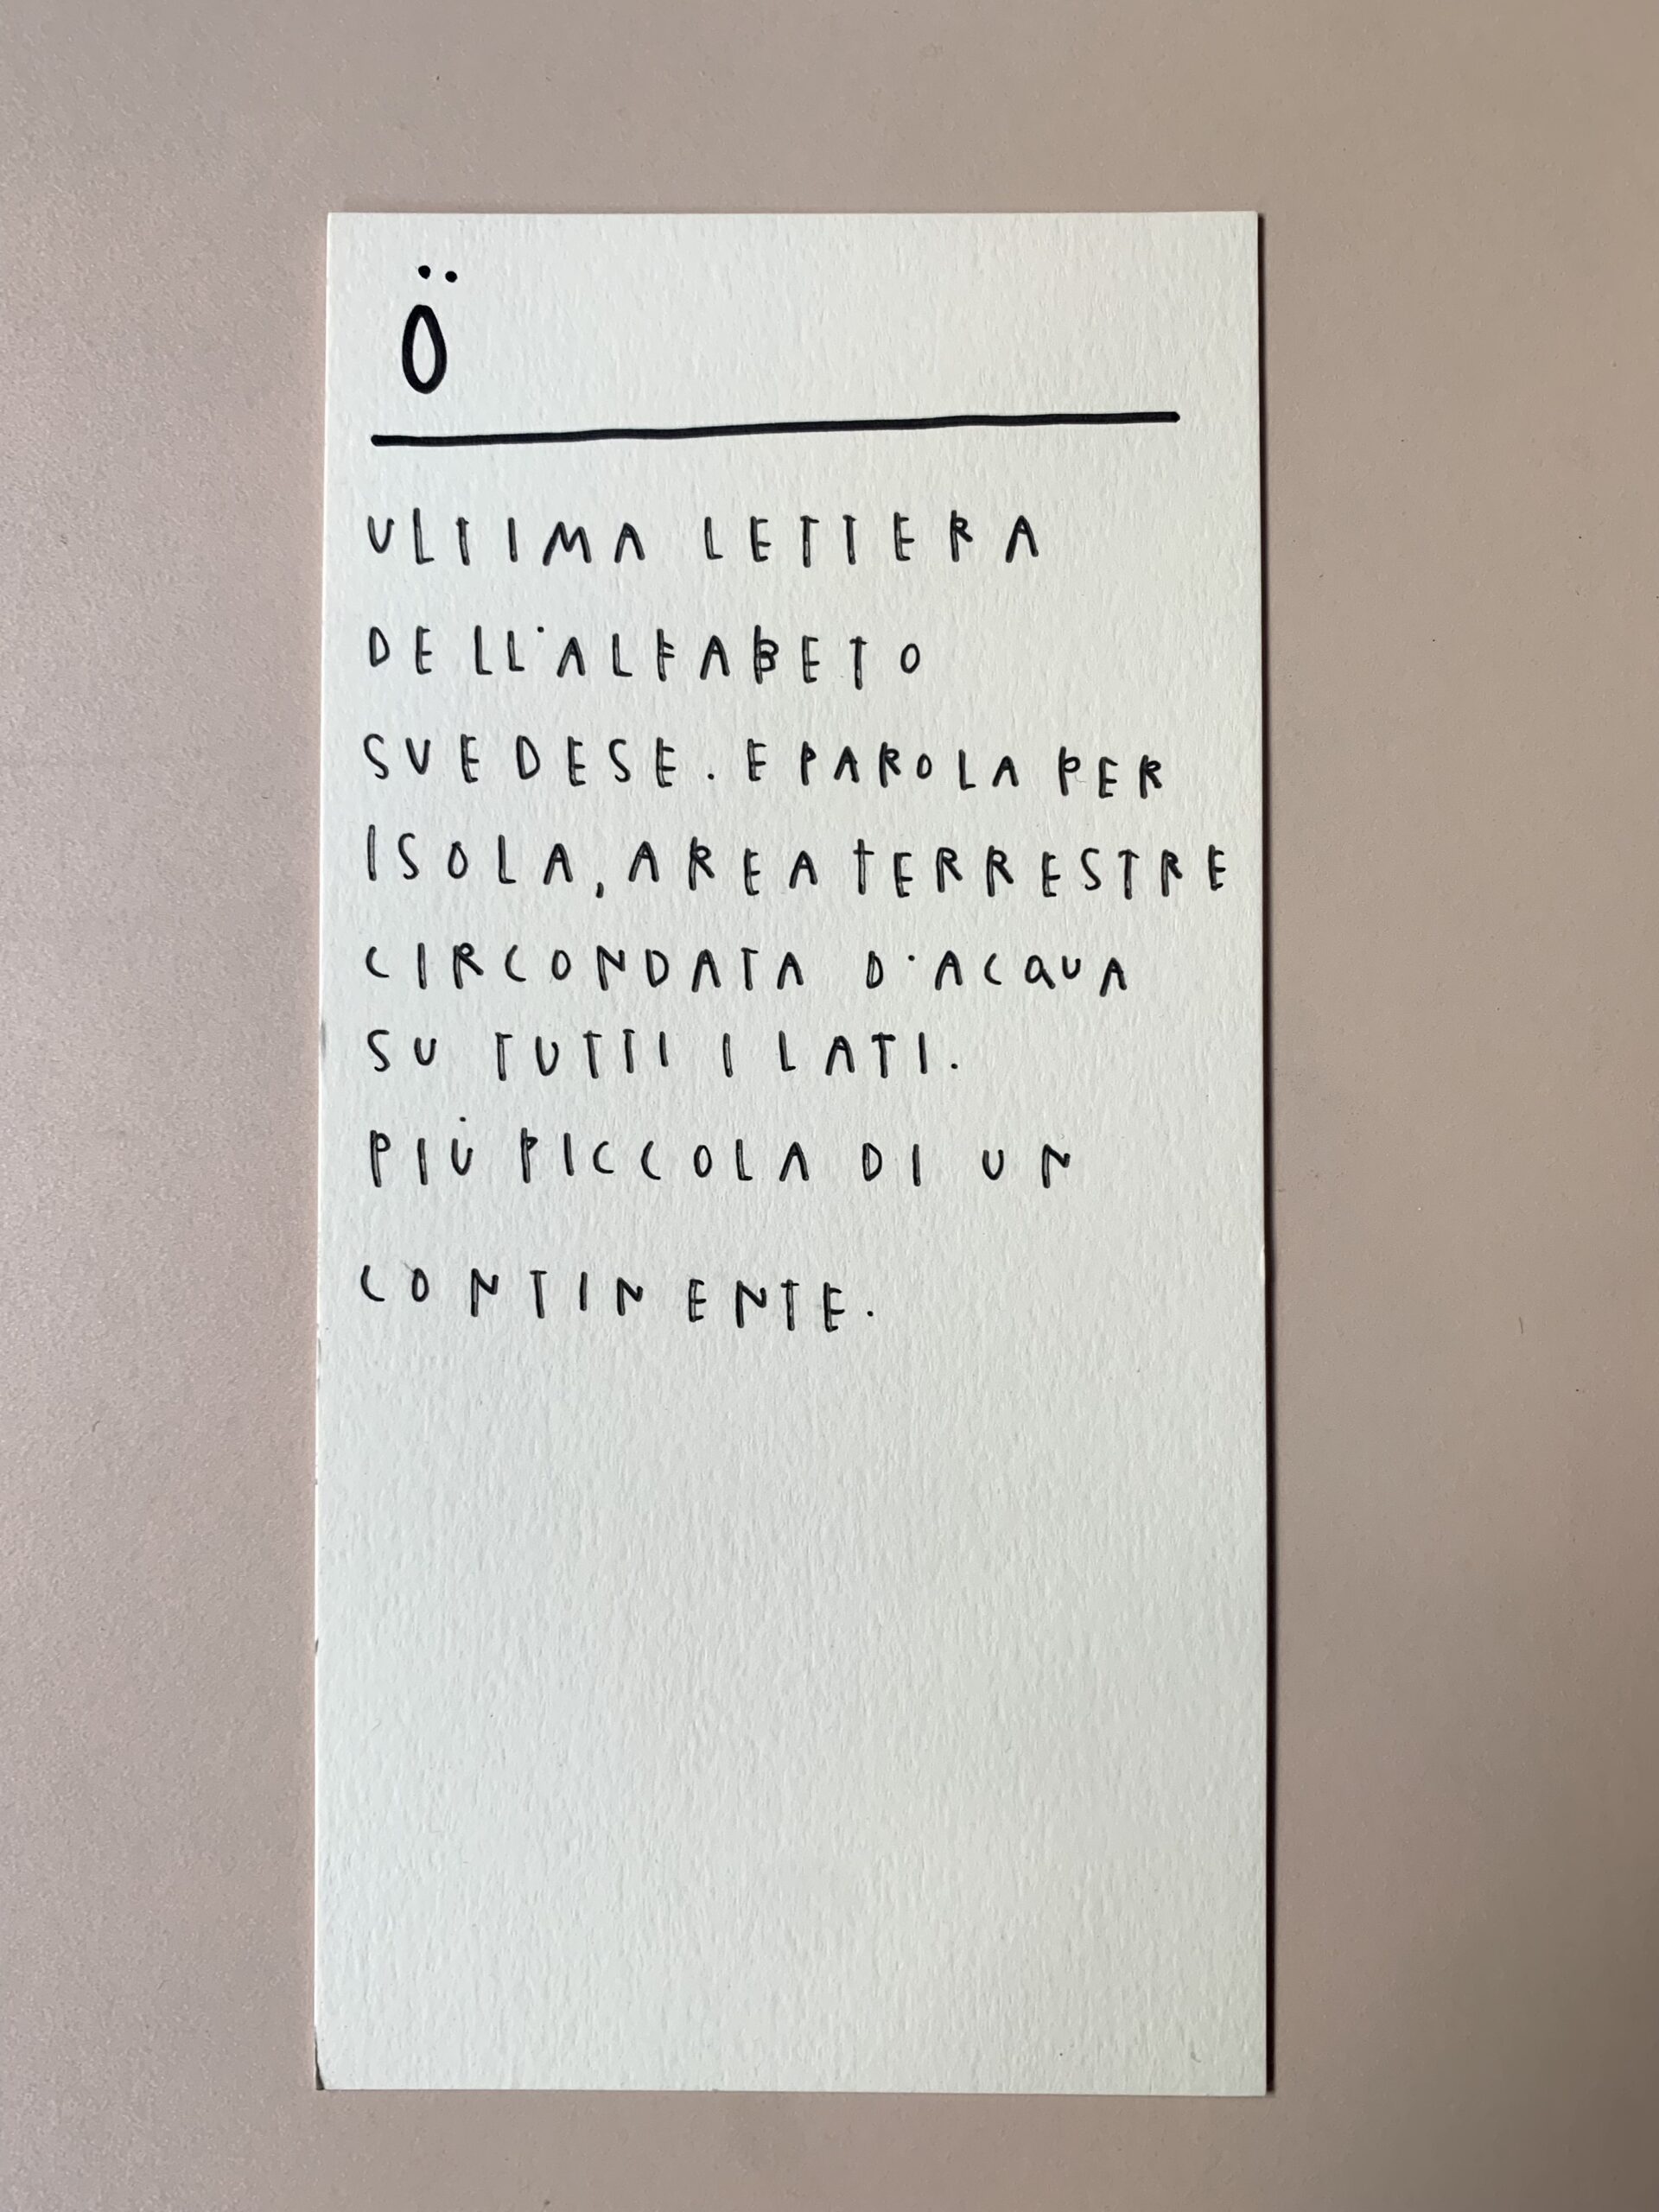 Ö
ULTIMA LETTERA
DELL'ALFABETO
SVEDESE. E PAROLA PER
ISOLA, AREA TERRESTRE
CIRCONDATA D'ACQUA
SU TUTTI I LATI.
PIÙ PICCOLA DI UN
CONTINENTE.